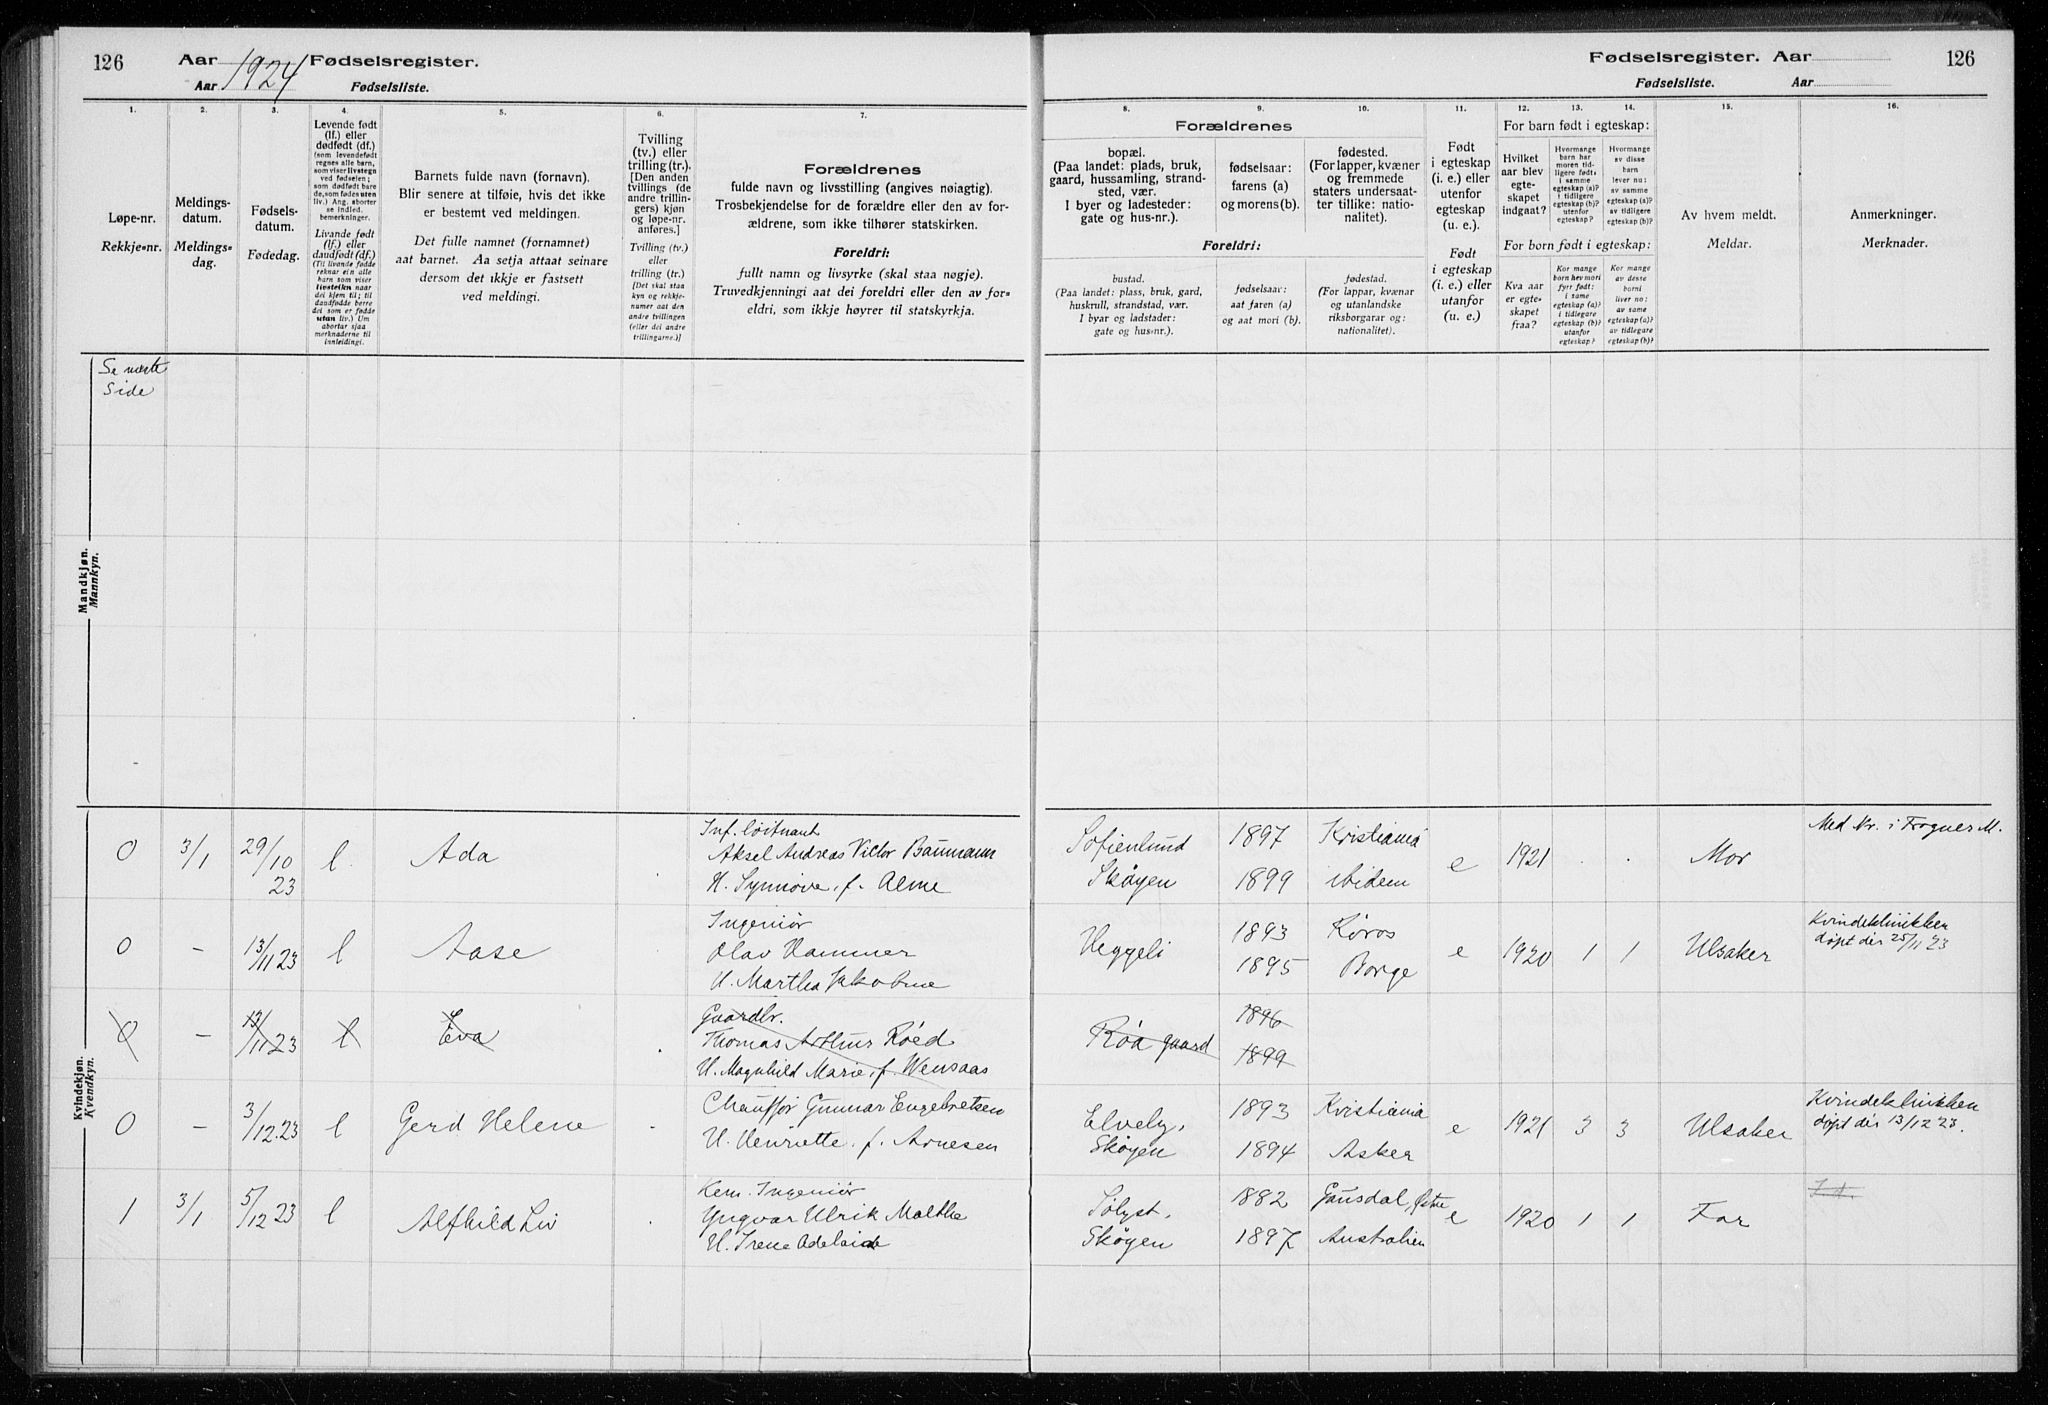 126
Aar 1924 Fødselsregister.
Aar Fødselsliste.
1. 2. 3. 4. 5. 6. 7.
Løpe-nr.
Rekkje-nr.
Meldings-
datum.
Meldings-
dag.
Fødsels-
datum.
Fødedag.
Levende født
(lf.) eller
dødfødt (df.)
(som levendefødt
regnes alle barn,
som viser livstegn
ved fødselen;
som dødfødt bare
de, som fødes uten
liv.) Ang. aborter
se indled.
bemerkninger.
Livande født
(lf.) eller
daudfødt (df.)
(Til livande fødde
reknar ein alle
barn som viser
livsteikn naar
dei kjem til; til
daudfødde berre
dei som er fødde
utan liv.) Um
abortar sjaa
merknaderne til
innleidingi.
Barnets fulde navn (fornavn).
Blir senere at tilføie, hvis det ikke
er bestemt ved meldingen.
Det fulle namnet (fornamnet)
aat barnet. Aa setja attaat seinare
dersom det ikkje er fastsett
ved meldingi.
Tvilling
(tv.) eller
trilling (tr.).
[Den anden
tvillings (de
andre trillin-
gers) kjøn
og løpe-nr.
anføres.]
Tvilling (tv.)
eller
trilling (tr.)
[Det skal staa
kyn og rekkje-
numer aat den
andre tvillingen
(eller dei andre
trillingarne.)]
Forældrenes
fulde navn og livsstilling (angives nøiagtig).
Trosbekjendelse for de forældre eller den av for-
ældrene, som ikke tilhører statskirken.
Foreldri:
fullt namn og livsyrke (skal staa nøgje).
Truvedkjenningi aat dei foreldri eller den av for-
eldri, som ikkje høyrer til statskyrkja.
Fødselsregister. Aar 126
Fødselsliste. Aar
8. 9. 10. 11. 12. 13. 14. 15. 16.
Forældrenes
bopæl.
(Paa landet: plads, bruk,
gaard, hussamling, strand-
sted, vær.
I byer og ladesteder:
gate og hus-nr.).
fødselsaar:
farens (a)
og morens (b).
fødested.
(For lapper, kvæner
og fremmede
staters undersaat-
ter tillike: natio-
nalitet).
Foreldri:
bustad.
(Paa landet: plass, bruk, gard,
huskrull, strandstad, vær.
I byar og ladstader:
gate og hus-nr.).
fødselsaar:
aat faren (a)
og aat mori (b).
fødestad.
(For lappar, kvænar
og utanlandske
riksborgarar og:
nationalitet).
Født
i egteskap
(i. e.) eller
utenfor
egteskap
(u. e.).
Født
i egteskap
(i. e.) eller
utanfor
(u. e.).
For barn født i egteskap:
Hvilket
aar blev
egte-
skapet
indgaat?
Hvormange
barn har
moren tid-
ligere født:
i samme
egteskap (a)?
i tidligere
egteskap (b)?
utenfor
egteskap?
Hvormange
av disse
barn
lever nu:
av samme
egteskap (a)?
av tidligere
egteskap (b)?
For born født i egteskap:
Kva aar
er egte-
skapet
fraa?
Kor mange
born hev mori
fyrr født:
i same
egteskap (a)?
i tidlegare
egteskap (b)?
utanfor
egteskap?
Kor mange
av desse
borni
liver no:
av same
egteskap (a)?
av tidlegare
egteskap (b)?
Av hvem meldt.
Meldar.
Anmerkninger.
Merknader.
Mandkjøn.
Mannkyn.
Se næste
Side
Kvindekjøn.
Kvendkyn.
0 3/1 29/10 23 l Ada
Inf. løitnant
Aksel Andreas Victor Baumann
H. Synnøve, f. Alme
Sofienlund
Skøyen
1897 Kristiania
1899 ibidem
e 1921 . . Mor
Med Nr. i Frogner M.
0 - 13/11 23 l Aase
Ingeniør
Olav Hammer
H. Martha Jakobine
Heggeli
1893 Røros
1895 Borge
e 1920 1 1 Ulsaker
Kvindeklinikken
døpt der 25/11 23
0 - 13/11 23 l Eva
Gaardbr.
Thomas Arthur Røed
H. Magnhild Marie, f. Wensaas
Røa gaard
1896
1899
0 - 3/12.23 l Gerd Helene
Chauffør Gunnar Engebretsen
H. Henriette. f. Arnesen
Elvely,
Skøyen
1893 Kristiania
1894 Asker
e 1921 3 3 Ulsaker
Kvindeklinikken
døpt der 13/12 23.
1 3/1 5/12 23 l Alfhild Liv
Kem. Ingeniør
Yngvar Ulrik Malthe
H. Irene Adelaide
Sølyst,
Skøyen
1882 Gausdal, Østre
1897 Australien
e 1920 1 1 Far